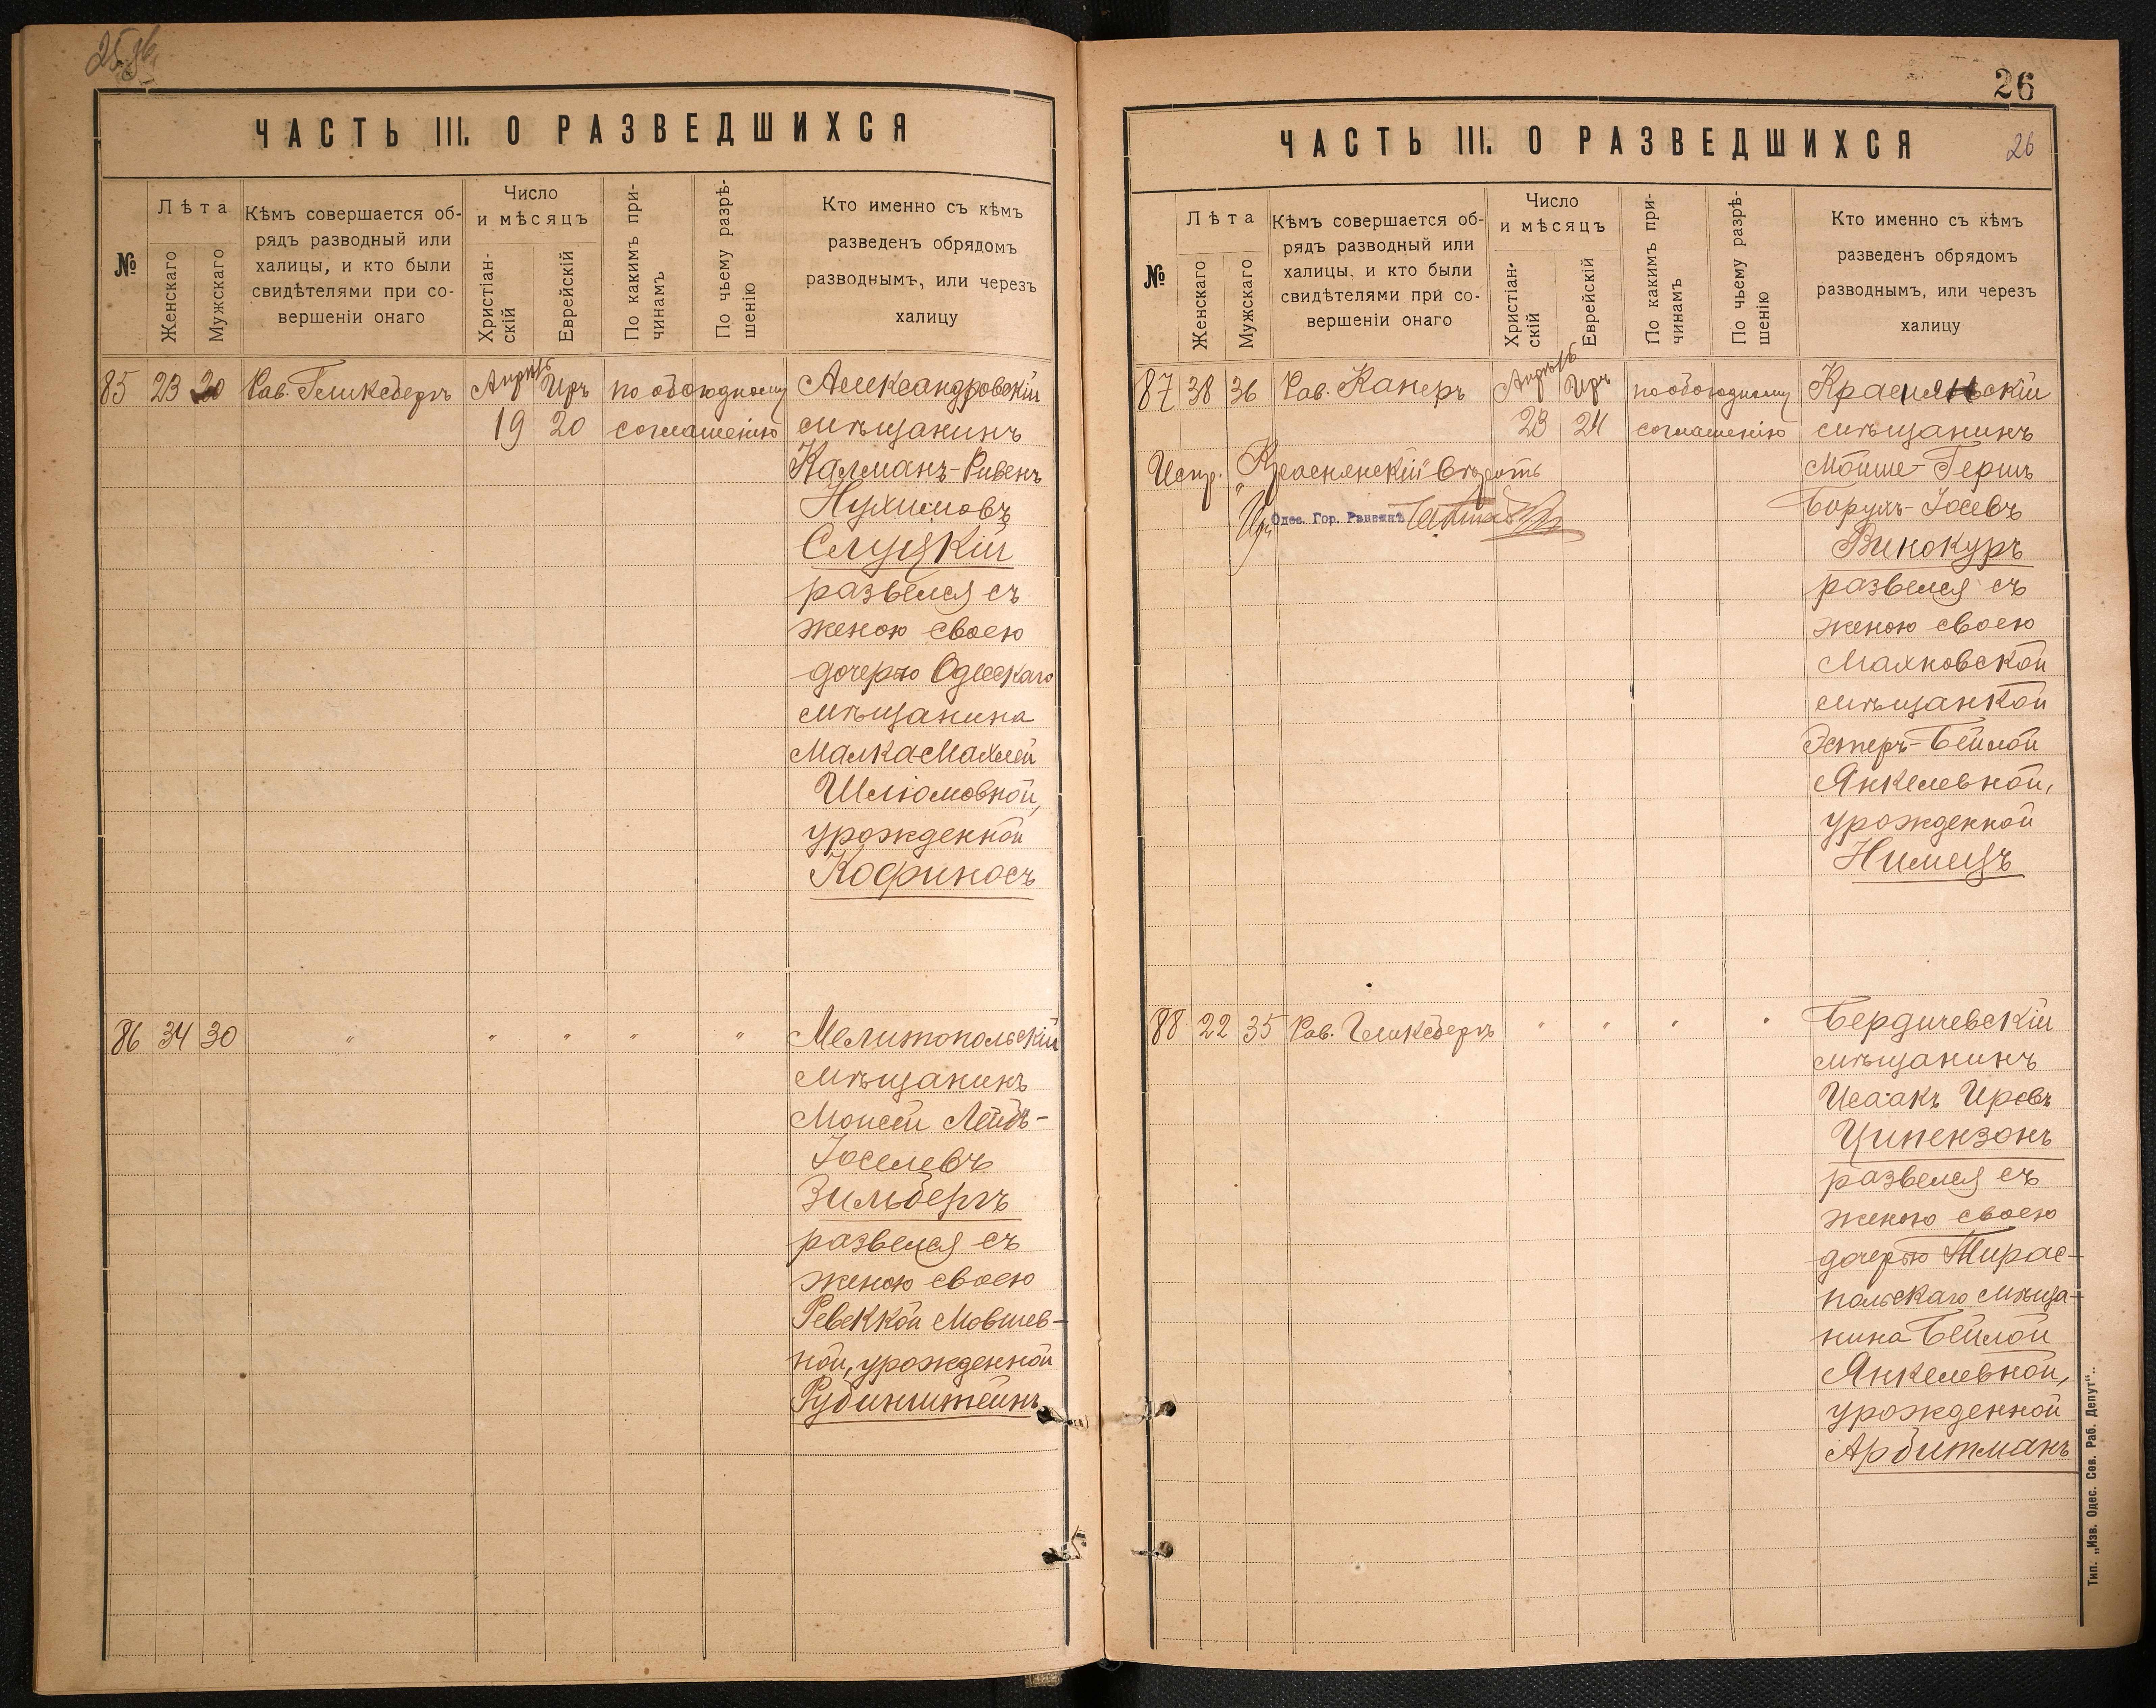 ЧАСТЬ III. О РАЗВЕДШИХСЯ
№
Лѣта
Женскаго
Мужскаго
Кѣмъ совершается об-
рядъ разводный или
халицы, и кто были
свидѣтелями при со-
вершеніи онаго
Число
и мѣсяцъ
Христіан-
скій
Еврейскій
По какимъ при-
чинамъ
По чьему разрѣ-
шенію
Кто именно съ кѣмъ
разведенъ обрядомъ
разводнымъ, или черезъ
халицу
85 23 30 Рав. Гликсбергъ Апрѣль Иръ по обоюдному Александровскій
19 20 соглашенію мѣщанинъ
Калманъ-Ривенъ
Нухимовъ
Слуцкій
развелся съ
женою своею
дочерью Одесскаго
мѣщанина
Малка-Махлей
Шліомовной,
урожденной
Кофиносъ
86 34 30 " " " " " Мелитопольскій
мѣщанинъ
Моисей Лейбъ-
Іоселевъ
Зильбергъ
развелся съ
женою своею
Ревеккой Мовшев-
ной, урожденной
Рубинштейнъ
26
ЧАСТЬ III. О РАЗВЕДШИХСЯ
26
№
Лѣта
Женскаго
Мужскаго
Кѣмъ совершается об-
рядъ разводный или
халицы, и кто были
свидѣтелями при со-
вершеніи онаго
Число
и мѣсяцъ
Христіан-
скій
Еврейскій
По какимъ при-
чинамъ
По чьему разрѣ-
шенію
Кто именно съ кѣмъ
разведенъ обрядомъ
разводнымъ, или черезъ
халицу
87 38 36 Рав. Канеръ Апрѣль Иръ по обоюдному Краснянскій
23 24 соглашенію мѣщанинъ
Испр. „Краснянскій" вѣрить
Одес. Гор. Раввинъ
Мойше-Гершъ
Борухъ-Іосевъ
Винокуръ
развелся съ
женою своею
Махновской
мѣщанкой
Эстеръ-Бейлой
Янкелевной,
урожденной
Нимецъ
88 22 35 Рав. Гликсбергъ " " " " Бердичевскій
мѣщанинъ
Исаакъ Иревъ
Ципензонъ
развелся съ
женою своею
дочерью Тирас-
польскаго мѣща-
нина Бейлой
Янкелевной,
урожденной
Арбитманъ
Тип. „Изв. Одес. Сов. Раб. Депут".